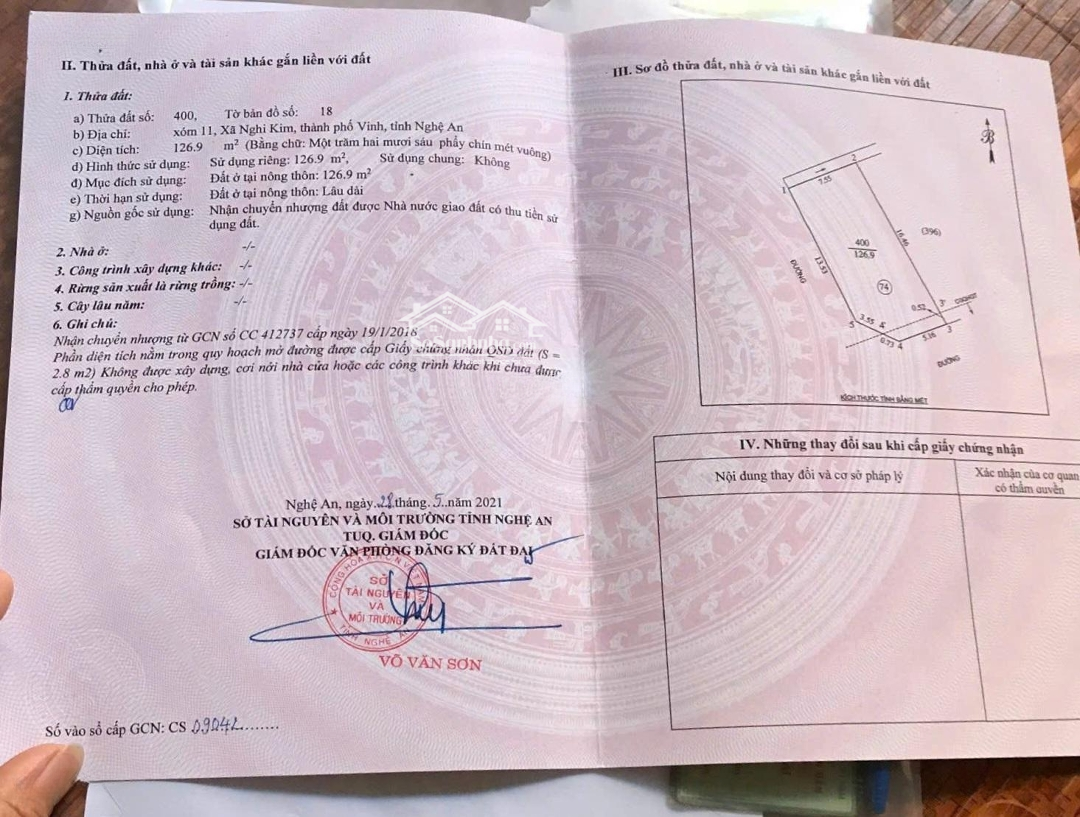 II. Thửa đất, nhà ở và tài sản khác gắn liền với đất
1. Thửa đất:
a) Thửa đất số: 400, Tờ bản đồ số: 18
b) Địa chỉ: xóm 11, Xã Nghi Kim, thành phố Vinh, tỉnh Nghệ An
c) Diện tích: 126.9 m² (Bằng chữ: Một trăm hai mươi sáu phẩy chín mét vuông)
d) Hình thức sử dụng: Sử dụng riêng: 126.9 m², Sử dụng chung: Không
đ) Mục đích sử dụng: Đất ở tại nông thôn: 126.9 m²
e) Thời hạn sử dụng: Đất ở tại nông thôn: Lâu dài
g) Nguồn gốc sử dụng: Nhận chuyển nhượng đất được Nhà nước giao đất có thu tiền sử
dụng đất.
2. Nhà ở: -/-
3. Công trình xây dựng khác: -/-
4. Rừng sản xuất là rừng trồng: -/-
5. Cây lâu năm: -/-
6. Ghi chú:
Nhận chuyển nhượng từ GCN số CC 412737 cấp ngày 19/1/2018
Phần diện tích nằm trong quy hoạch mở đường được cấp Giấy chứng nhận QSD đất (S =
2.8 m2) Không được xây dựng, cơi nới nhà cửa hoặc các công trình khác khi chưa được
cấp thẩm quyền cho phép.
Nghệ An, ngày 28 tháng 5 năm 2021
SỞ TÀI NGUYÊN VÀ MÔI TRƯỜNG TỈNH NGHỆ AN
TUQ. GIÁM ĐỐC
GIÁM ĐỐC VĂN PHÒNG ĐĂNG KÝ ĐẤT ĐAI
CỘNG HÒA X.H.C.N VIỆT NAM
SỞ
TÀI NGUYÊN
VÀ
MÔI TRƯỜNG
TỈNH NGHỆ AN
VÕ VĂN SƠN
Số vào sổ cấp GCN: CS 09042
III. Sơ đồ thửa đất, nhà ở và tài sản khác gắn liền với đất
B
1
2
7.55
16.46
(396)
400
126.9
74
13.53
ĐƯỜNG
0.52
3'
3.55
4'
5
0.73
4
5.16
3
ĐƯỜNG
KÍCH THƯỚC TÍNH BẰNG MÉT
IV. Những thay đổi sau khi cấp giấy chứng nhận
Nội dung thay đổi và cơ sở pháp lý
Xác nhận của cơ quan
có thẩm quyền